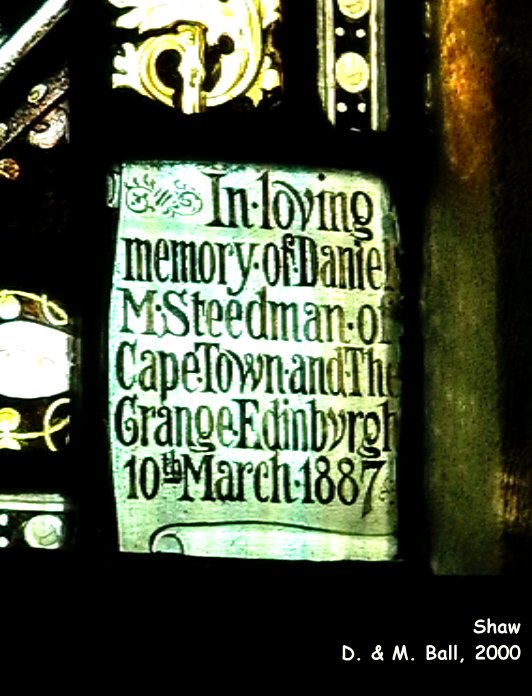 In·loving
memory·of·Daniel
M·Steedman·of
Cape Town·and·The
Grange Edinburgh
10th March·1887
Shaw
D. & M. Ball, 2000